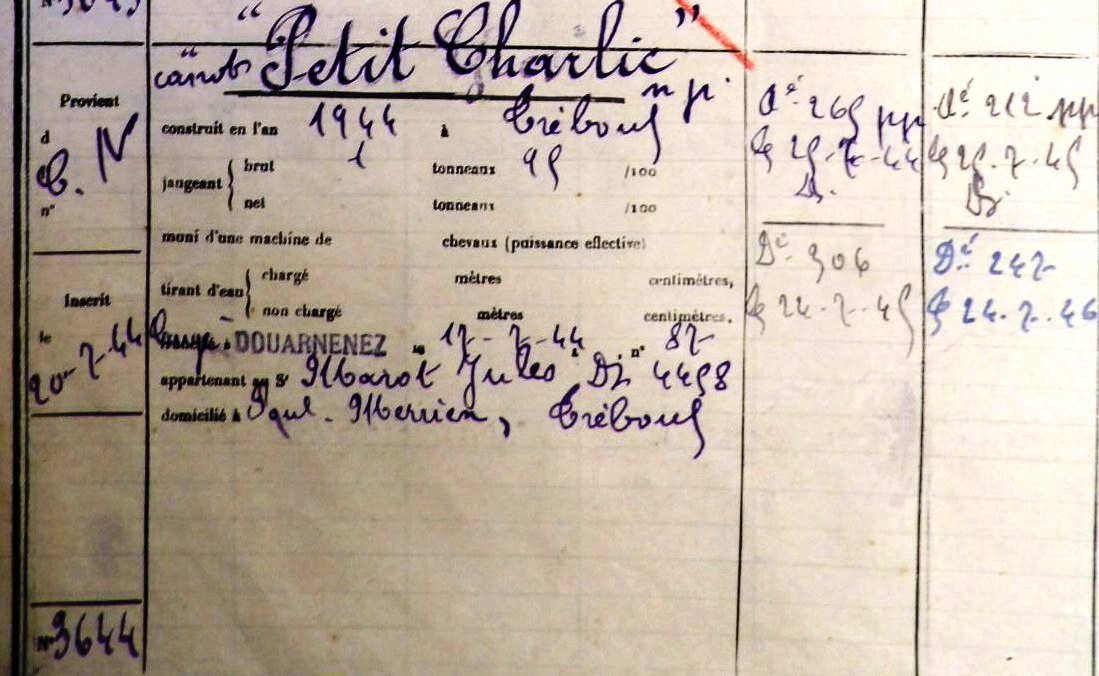 N° 3643
"Petit Charlie"
canot
n p.
Provient
d
C. N
n°
construit en l'an 1944 à Tréboul
jaugeant { brut 1 tonneaux 95 /100
net tonneaux /100
muni d'une machine de chevaux (puissance effective)
tirant d'eau { chargé mètres centimètres,
non chargé mètres centimètres,
Inscrit
le
20-7-44
DOUARNENEZ le 17-7-44 n° 87
appartenant au Sr Marot Jules Dz 4458
domicilié à Tréboul
N° 3644
Aé 265 pp
le 25-7-44
D.
Dé 306
le 24-7-45
Aé 212 pp
le 25.7.45
Dz
Dé 247
le 24.7.46